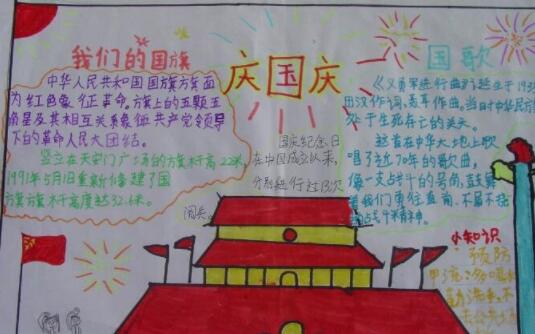 我们的国旗
中华人民共和国国旗旗面
为红色象征革命。旗上的五颗五
角星及其相互关系象征共产党领导
下的革命人民大团结。
竖立在天安门广场的旗杆高22米,
1991年5月1日重新修建了国
旗旗杆高度达32.6米。
庆国庆
国庆纪念日
在中国成立以来,
分别进行过13次
阅兵。
国歌
《义勇军进行曲》诞生于193
田汉作词,聂耳作曲,当时中华民族
处于生死存亡的关头。
这首在中华大地上歌
唱了近70年的歌曲,
像一支战斗的号角,鼓舞
着我们勇往直前、不屈不挠
战斗精神。
小知识
预防
甲流:多喝
勤洗手,不
去公共